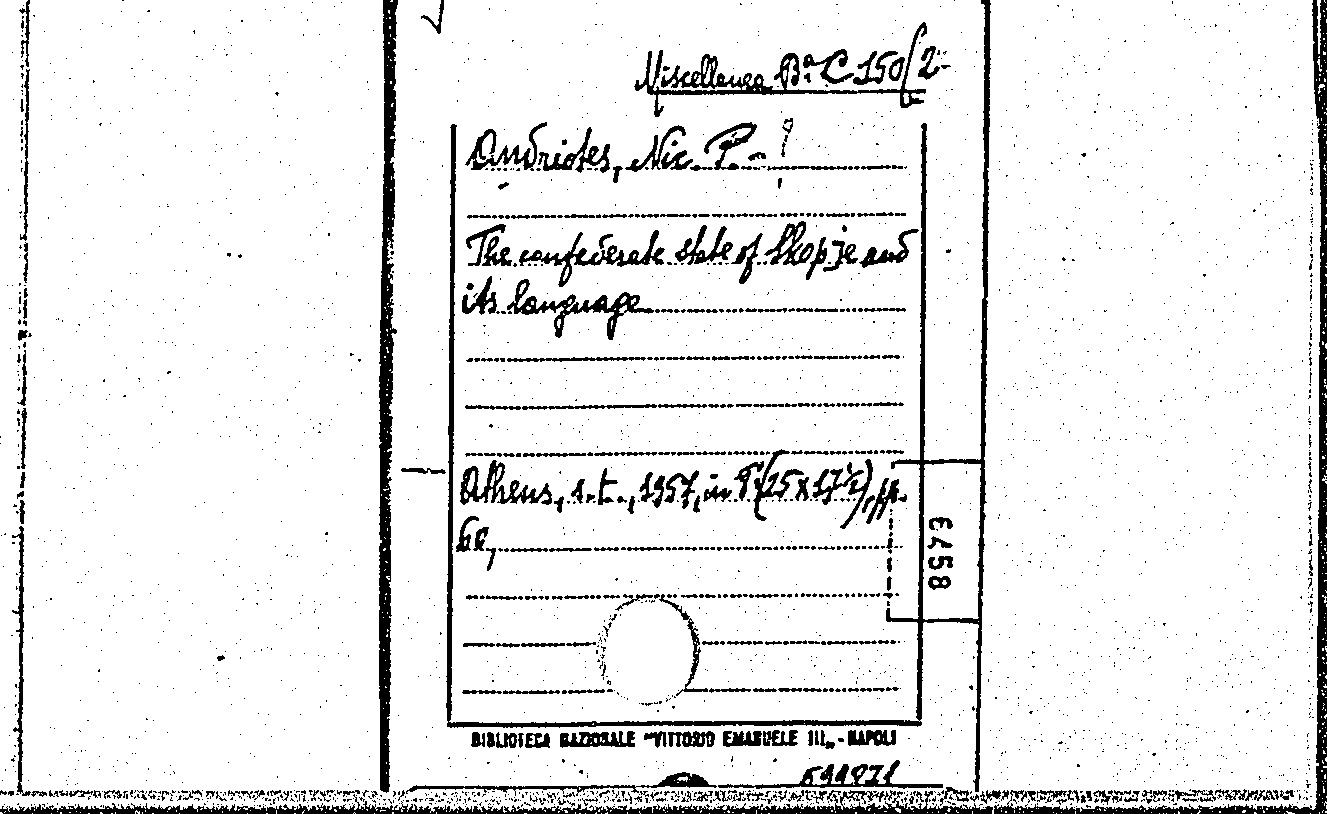 Miscellanea Bª C 150/2
Andriotes, Nic. P.-
The confederate state of Skopje and
its language
Athens, s.t., 1957, in 8° (25x17½), pp.
60,
8543
BIBLIOTECA NAZIONALE "VITTORIO EMANUELE III„ - NAPOLI